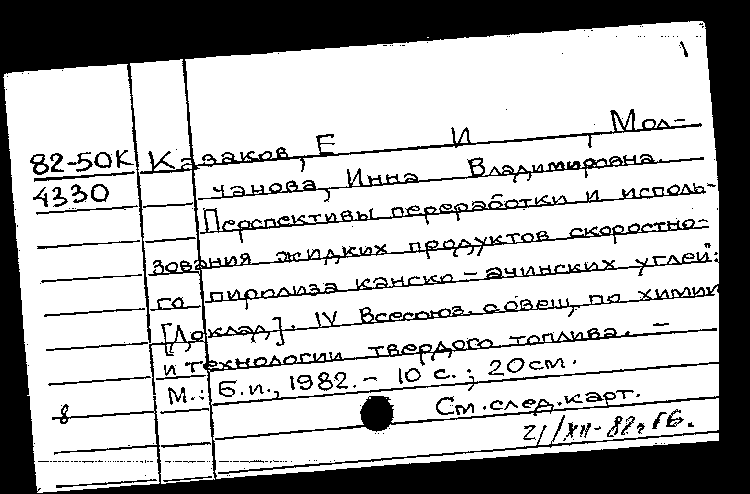 1
82-50К Казаков, Е И , Мол-
4330 чанова, Инна Владимировна.
Перспективы переработки и исполь-
зования жидких продуктов скоростно-
го пиролиза канско-ачинских углей:
[Доклад]. IV Всесоюз. совещ. по химии
и технологии твердого топлива. –
М.: Б.и., 1982. – 10 с.; 20см.
8 См. след. карт.
21/XII-82г.